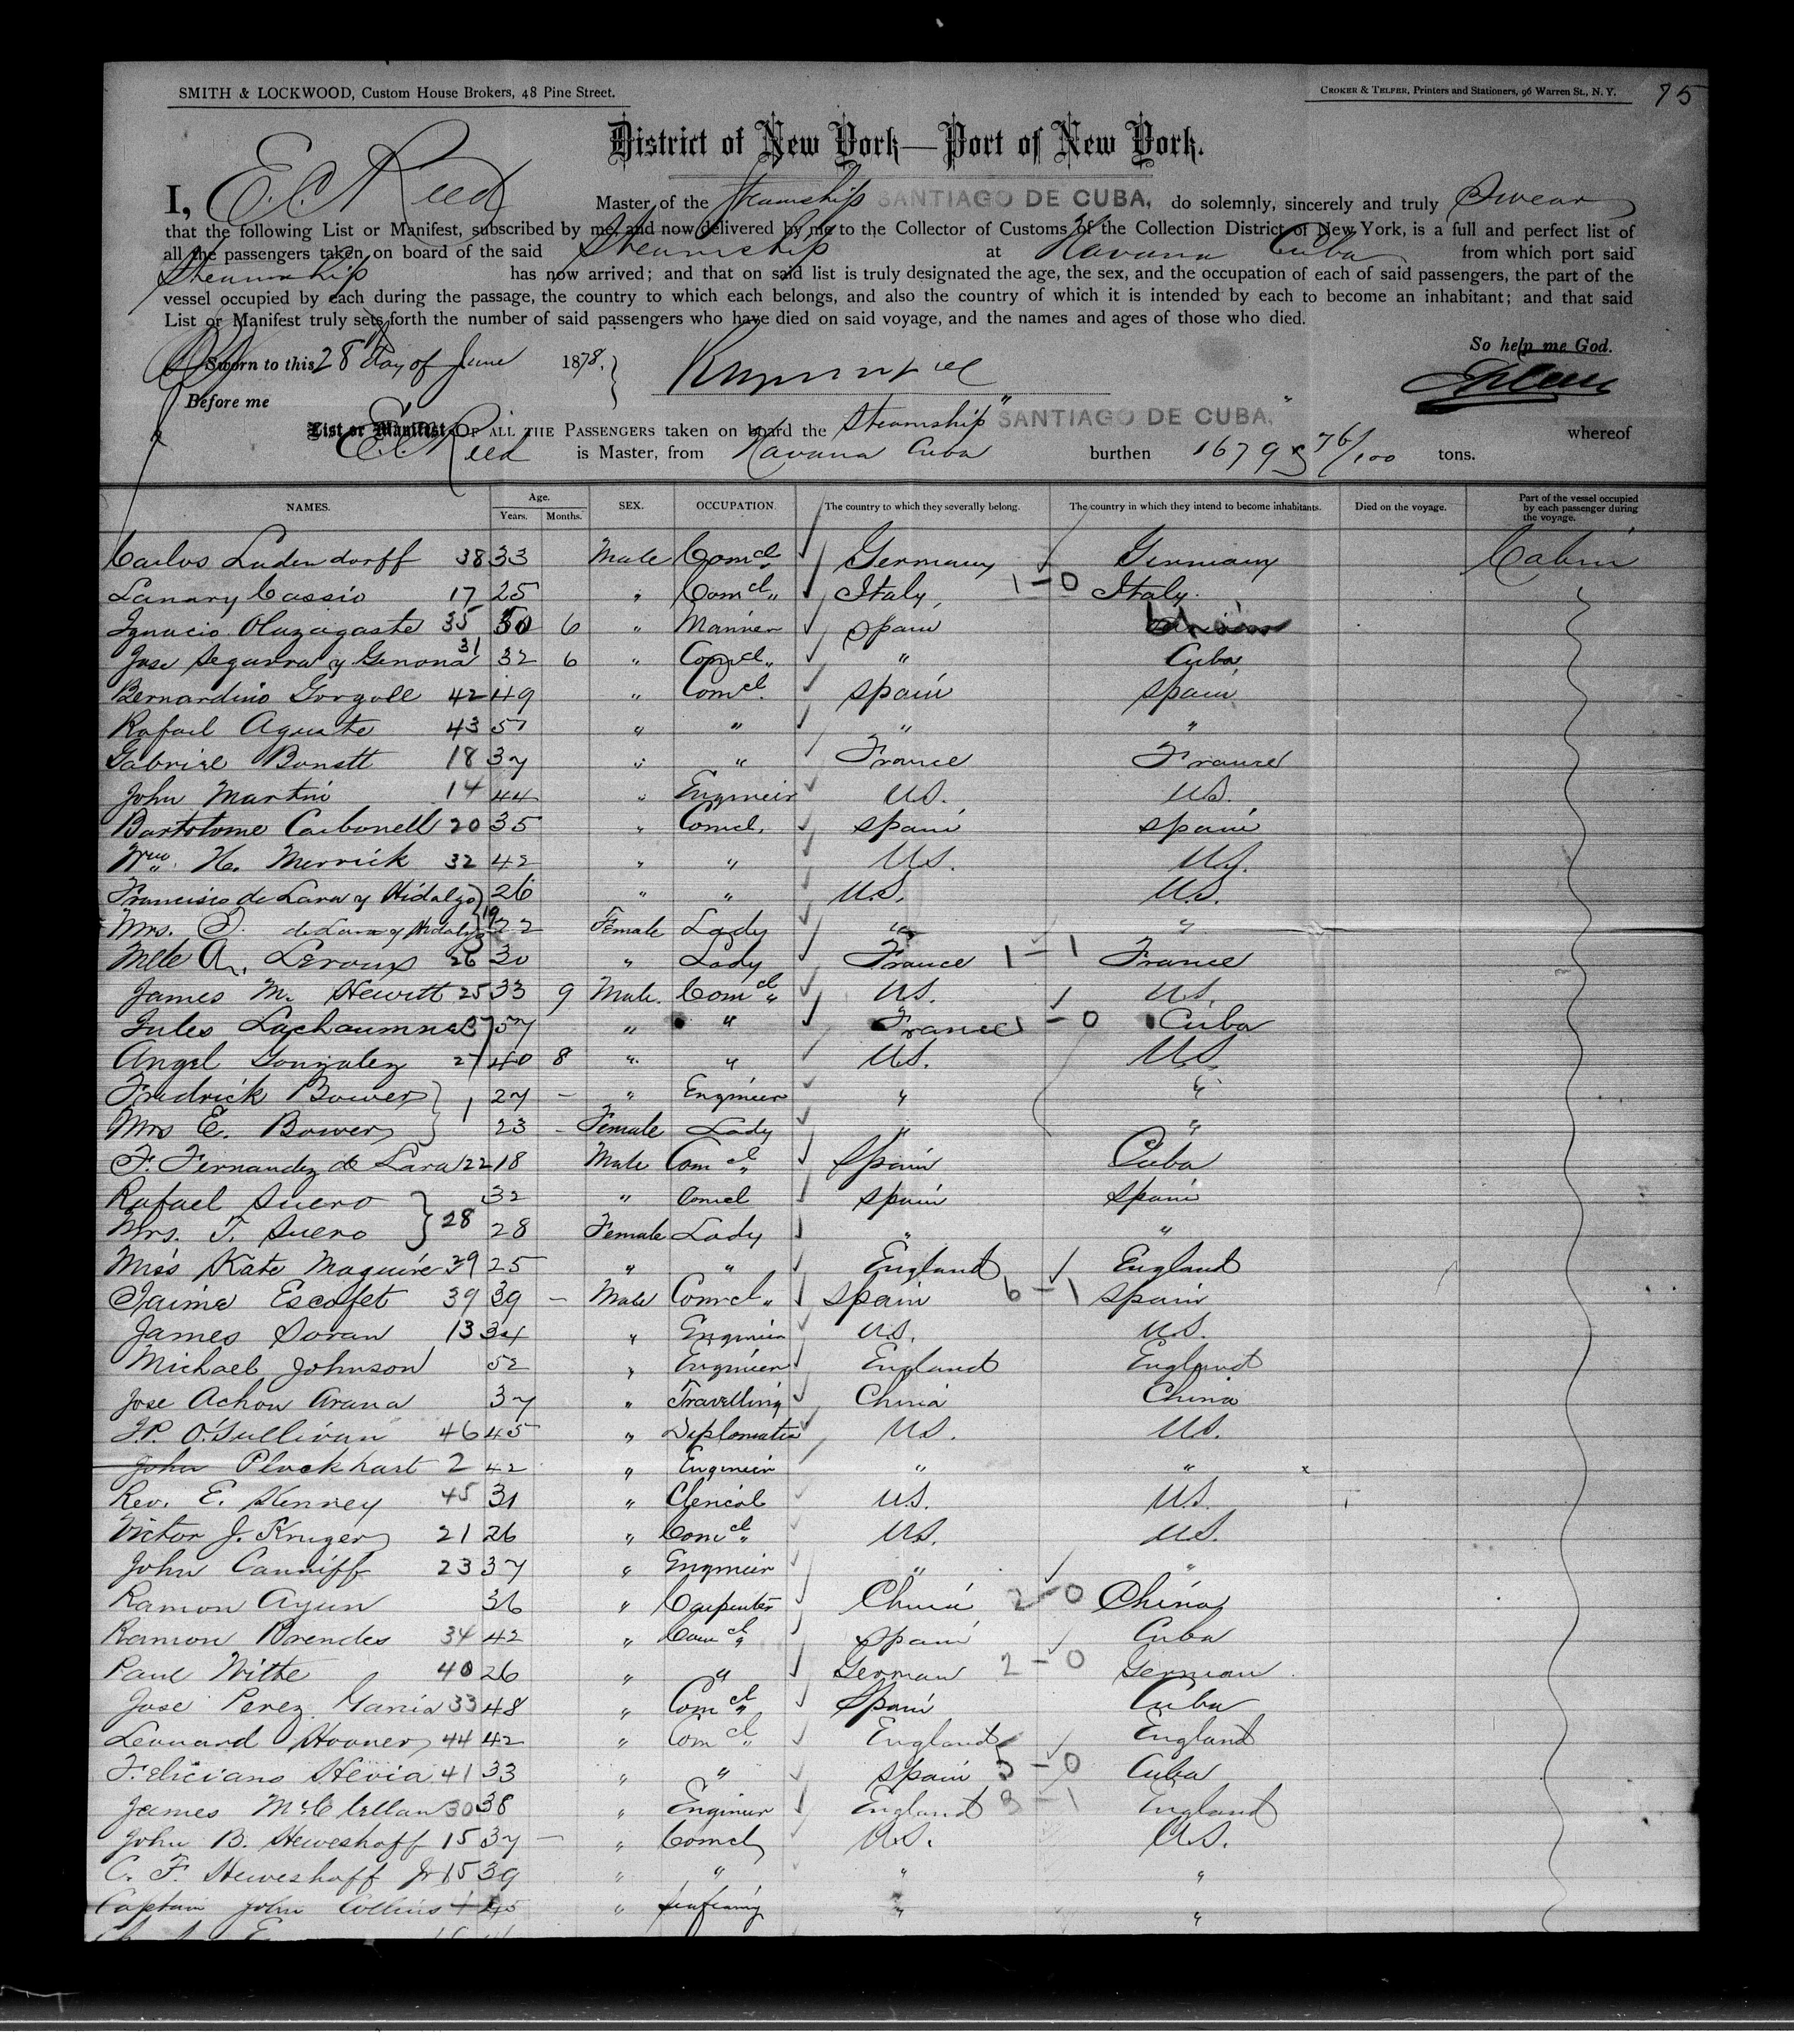 SMITH & LOCKWOOD, Custom House Brokers, 48 Pine Street.
CROKER & TELFER, Printers and Stationers, 96 Warren St., N. Y.
75
District of New York—Port of New York.
I, E. C. Reed Master of the Steamship SANTIAGO DE CUBA, do solemnly, sincerely and truly Swear
that the following List or Manifest, subscribed by me, and now delivered by me to the Collector of Customs of the Collection District of New York, is a full and perfect list of
all the passengers taken on board of the said Steamship at Havana Cuba from which port said
Steamship has now arrived; and that on said list is truly designated the age, the sex, and the occupation of each of said passengers, the part of the
vessel occupied by each during the passage, the country to which each belongs, and also the country of which it is intended by each to become an inhabitant; and that said
List or Manifest truly sets forth the number of said passengers who have died on said voyage, and the names and ages of those who died.
So help me God.
Sworn to this 28th day of June 1878.
Before me
List or Manifest OF ALL THE PASSENGERS taken on board the Steamship "SANTIAGO DE CUBA," whereof
E. C. Reed is Master, from Havana Cuba burthen 1679 76/100 tons.
NAMES. Age. Years. Months. SEX. OCCUPATION. The country to which they severally belong. The country in which they intend to become inhabitants. Died on the voyage. Part of the vessel occupied by each passenger during the voyage.
Carlos Ludendorff 38 33 Male Comcl. Germany Germany Cabin
Lanary Cassio 17 25 " Comcl. Italy 1-0 Italy
Ignacio Olazagaste 35 30 6 " Mariner Spain
Jose Segarra y Genona 31 32 6 " Comcl. " Cuba
Bernardino Gorgoll 42 49 " Comcl. Spain Spain
Rafael Aguste 43 57 " " " "
Gabriel Bonett 18 37 " " France France
John Martin 14 44 " Engineer U.S. U.S.
Bartolome Carbonell 20 35 " Comcl. Spain Spain
Wm. H. Merrick 32 42 " " U.S. U.S.
Francisco de Lara y Hidalgo 26 " " U.S. U.S.
Mrs. F. de Lara y Hidalgo 19 22 Female Lady " "
Mlle A. Leroux 26 30 " Lady France 1-1 France
James M. Hewitt 25 33 9 Male Comcl. U.S. U.S.
Jules Lachaumne 37 57 " " France 1-0 Cuba
Angel Gonzalez 27 40 8 " " U.S. U.S.
Fredrick Bower 1 27 - " Engineer " "
Mrs E. Bower 23 - Female Lady " "
F. Fernandez de Lara 22 18 Male Comcl. Spain Cuba
Rafael Suero 28 32 " Comcl Spain Spain
Mrs. T. Suero 28 Female Lady " "
Miss Kate Maguire 29 25 " " England England
Jaime Escofet 39 39 - Male Comcl. Spain 6-1 Spain
James Doran 13 34 " Engineer U.S. U.S.
Michael Johnson 52 " Engineer England England
Jose Achon Arana 37 " Travelling China China
J.P. O'Sullivan 46 45 " Diplomatic U.S. U.S.
John Plockhart 2 42 " Engineer " " x
Rev. E. Kenney 45 31 " Clerical U.S. U.S.
Victor J. Kruger 21 26 " Comcl. U.S. U.S.
John Canniff 23 37 " Engineer " "
Ramon Ayun 36 " Carpenter China 2-0 China
Ramon Brendes 34 42 " Comcl. Spain Cuba
Paul Witte 40 26 " " German 2-0 German
Jose Perez Garcia 33 48 " Comcl. Spain Cuba
Leonard Hoover 44 42 " Comcl. England England
Feliciano Hevia 41 33 " " Spain 5-0 Cuba
James McClellan 30 38 " Engineer England 3-1 England
John B. Heweshoff 15 37 - " Comcl U.S. U.S.
C. F. Heweshoff Jr 15 39 " " " "
Captain John Collins 1 45 " Seafaring " "